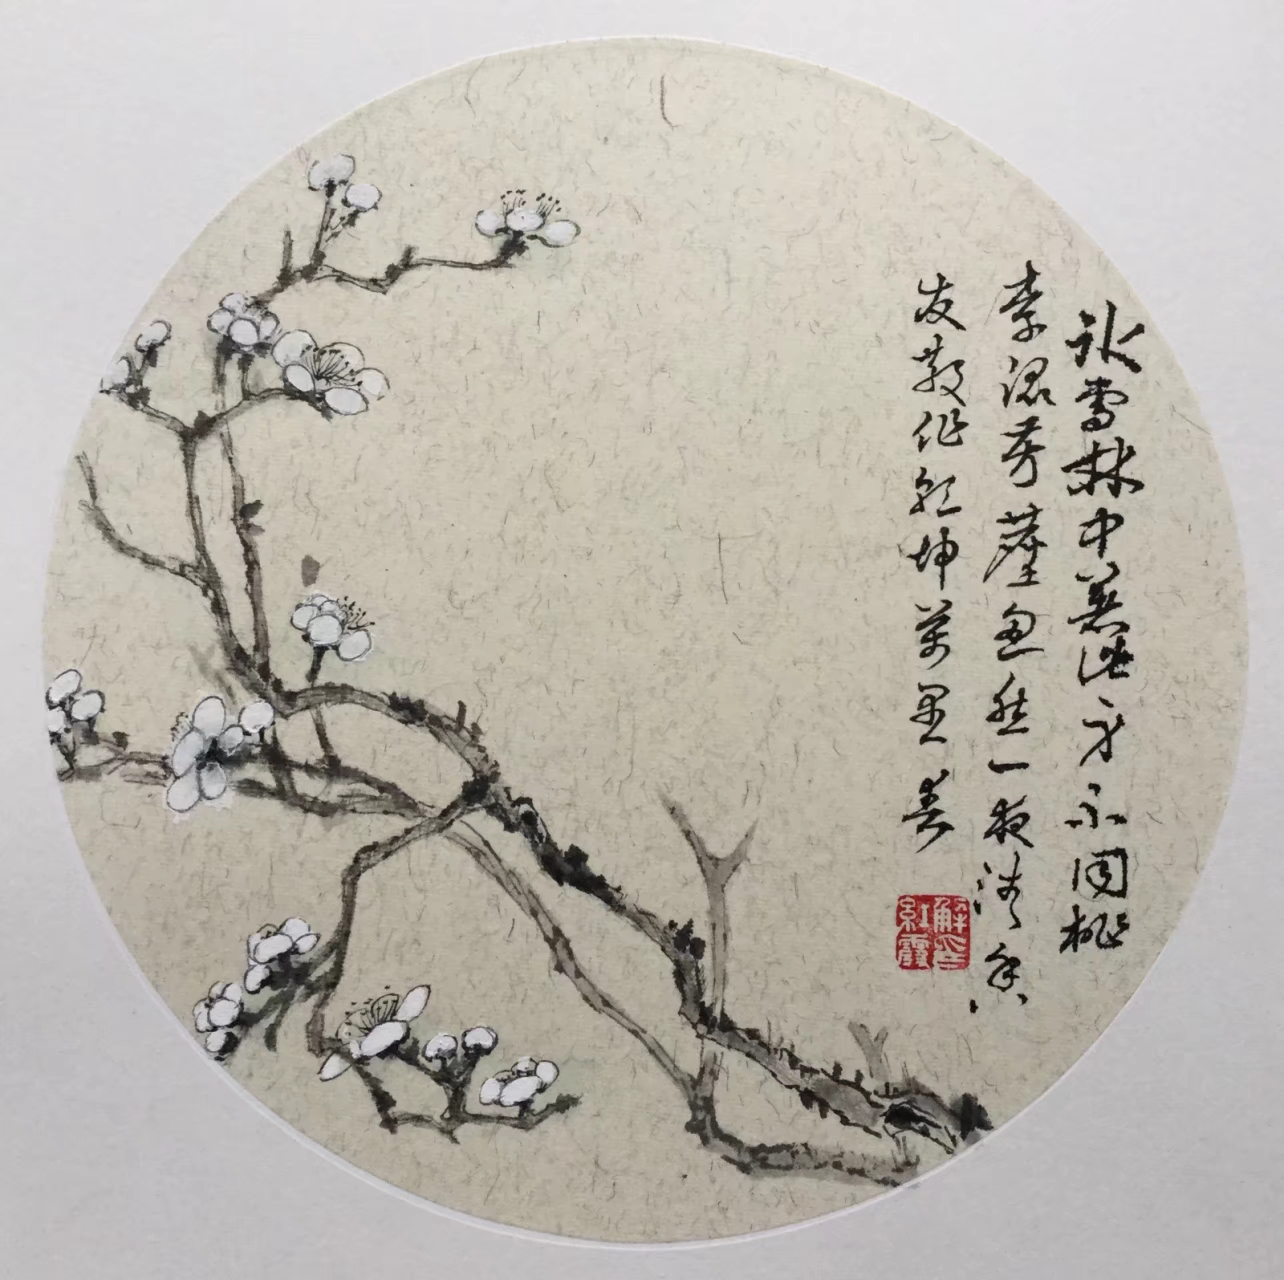 冰雪林中著此身不同桃
李混芳塵忽然一夜清香
发散作乾坤萬里春
解紅霞印